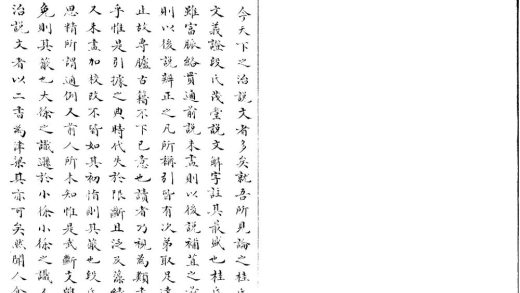 今天下之治說文者多矣就吾所見論之桂氏
文義證段氏茂堂說文解字註其最盛也桂氏
雖富脈絡貫通前說未盡則以後說補苴之前
則以後說辨正之凡所稱引皆有次第取足達
止故專臚古籍不下己意也讀者乃視為類書
乎惟是引據之典時代失於限斷且泛及藻繢
又未盡加校改不皆如其初恉則其蔽也段氏
思精所謂通例又前人所未知惟是武斷支離
免則其蔽也大徐之識遜於小徐小徐之識
治說文者以二書為津梁其亦可矣然聞人